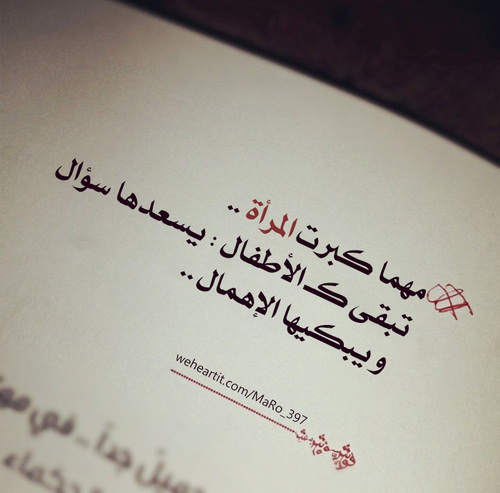 مهما كبرت المرأة ..
تبقى كـ الأطفال : يسعدها سؤال
ويبكيها الإهمال ..
weheartit.com/MaRo_397
جداً _ في